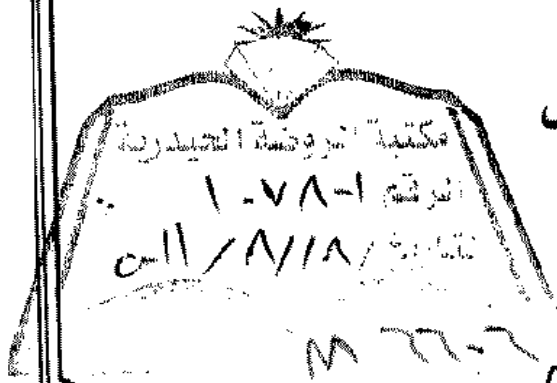 مكتبة الروضة الحيدرية
الرقم ١٠٧٨-١
التاريخ /١٨/٨/
M ٦٦-٦